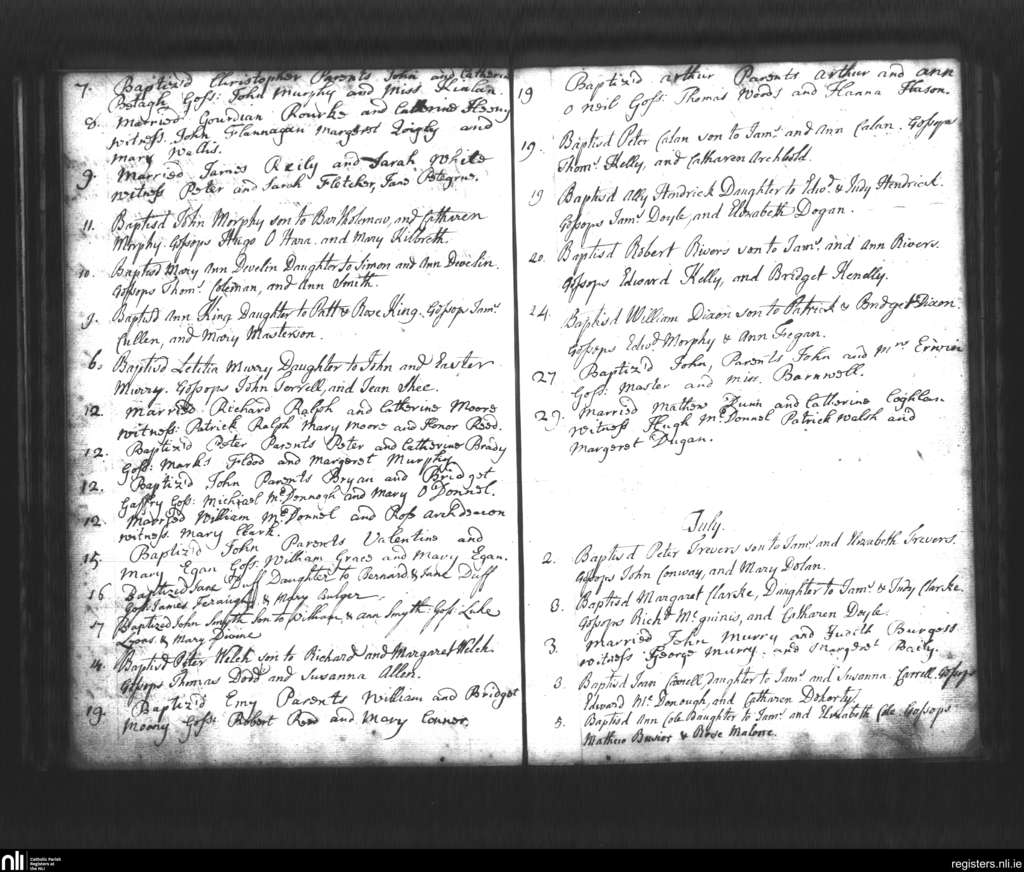 7. Baptiz'd Christopher Parents John and Catherine
Betagh Goss: John Murphy and Miss Kinlan.
8. Married Gourdian Rourke and Catherine Heeny
witness John Flannagan Margeret Quigly and
Mary Wallis.
9. Married James Reily and Sarah White
witness Peter and Sarah Fletcher, Jane Petegrue.
11. Baptisd John Morphy son to Bartholomew, and Catharen
Morphy. Gossops Hugo O Hara and Mary Kilbreth.
10. Baptisd Mary Ann Develin Daughter to Simon and Ann Develin.
Gossops Thoms. Coleman, and Ann Smith.
9. Baptisd Ann King Daughter to Patt & Rose King. Gossops Jams.
Cullen, and Mary Masterson.
6. Baptisd Letitia Murry Daughter to John and Easter
Murry. Gossops John Torrell, and Jean Shee.
12. Married Richard Ralph and Catherine Moore
witness: Patrick Ralph Mary Moore and Honor Reed.
12. Baptiz'd Peter Parents Peter and Catherine Brady
Goss: Marks Flood and Margeret Murphy
12. Baptiz'd John Parents Bryan and Bridget
Gaffry Goss: Michael McDonnogh and Mary O Donnel.
12 Married William McDonnel and Ross Archdeacon
witness. Mary Clark.
15. Baptiz'd John Parents Valentine and
Mary Egan Goss: William Grace and Mary Egan.
16 Baptized Jane Duff Daughter to Bernard & Jane Duff
Goss James & Mary Burger
17 Baptized John Smyth Son to William & ann Smyth Goss Luke
Lyons & Mary Divine
14. Baptisd Peter Welch son to Richard and Margaret Welch.
Gossops Thomas Dodd and Susanna Allen.
19. Baptiz'd Emy Parents William and Bridget
Moony Goss: Robert Reed and Mary Conner.
19 Baptiz'd arthur Parents arthur and ann
O Neil Goss: Thomas Woods and Hanna
19. Baptisd Peter Calan son to Jams. and Ann Calan. Gossops
Thoms. Kelly, and Catharen Archbold.
19 Baptisd Ally Hendrick Daughter to Edwd. & Judy Hendrick.
Gossops Jams. Doyle, and Elizabeth Dogan.
20. Baptisd Robert Rivers son to Jams. and Ann Rivers.
Gossops Edward Kelly, and Bridget Kenelly.
14. Baptisd William Dixon son to Patrick & Bridget Dixon.
Gossops Edwd. Morphy & Ann Fegan.
27 Baptiz'd John, Parents John and Mrs Erwin
Goss: Master and Miss. Barnwell.
29. Married Mathew Dunn and Catherine Coghlan
witness Hugh McDonnel Patrick Walsh and
Margeret Dugan.
July.
2. Baptisd Peter Trevers son to Jams. and Elizabeth Trevers.
Gossops John Conway, and Mary Dolan.
3. Baptisd Margaret Clarke, Daughter to Jams. & Judy Clarke.
Gossops Richd. McGuinis, and Catharen Doyle.
3. Married John Murry and Judith Burgess
witness George Murry. and Margeret Baily.
3. Baptisd Jean Carrell daughter to Jams. and Susanna Carrell. Gossops
Edward Mc.Donough, and Catharen Dokorty.
5. Baptisd Ann Cole Daughter to Jams. and Elizabeth Cole. Gossops
Mathew & Rose Malone.
nli Catholic Parish
Registers at
the NLI
registers.nli.ie